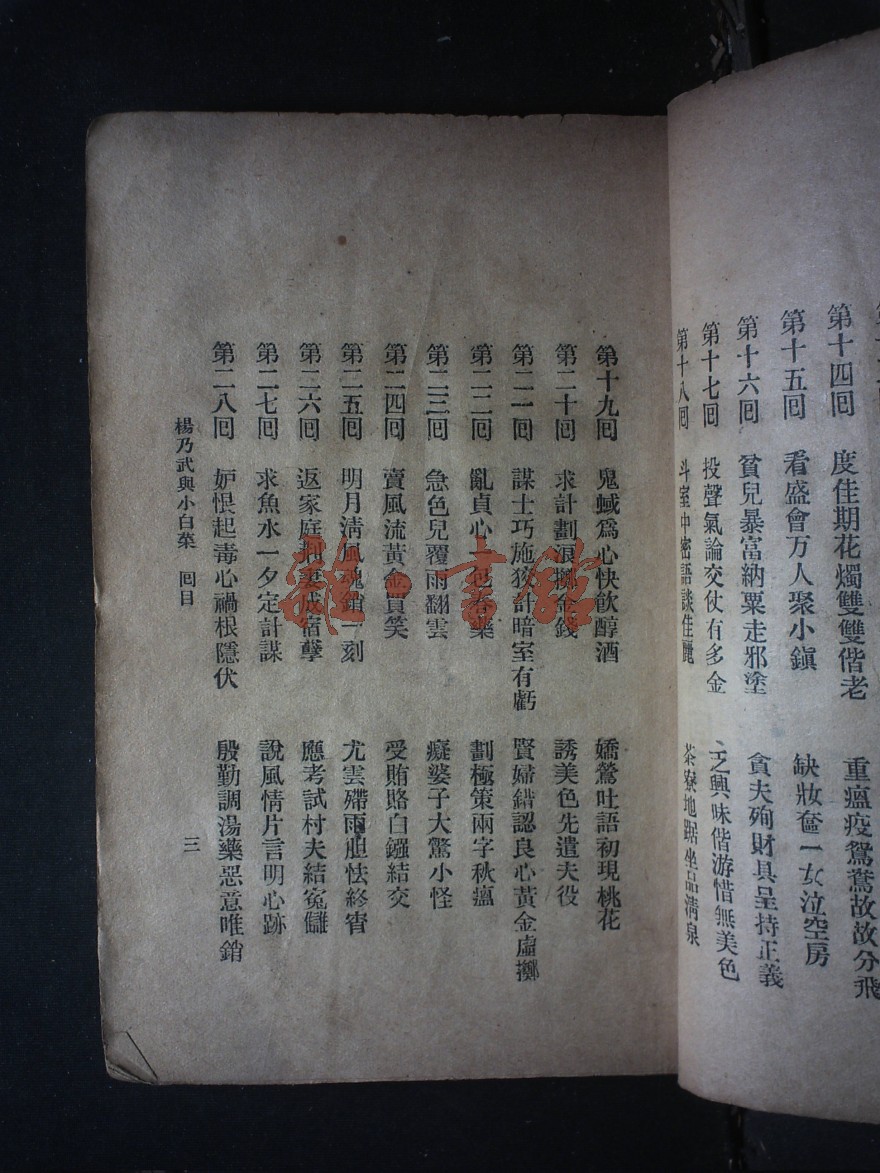 第十四回 度佳期花燭雙雙偕老 重瘟疫鴛鴦故故分飛
第十五回 看盛會万人聚小鎮 缺妝奩一女泣空房
第十六回 貧兒暴富納粟走邪塗 貪夫殉財具呈持正義
第十七回 投聲氣論交仗有多金 乏興味偕游惜無美色
第十八回 斗室中密語談佳麗 茶寮地踞坐品清泉
第十九回 鬼蜮爲心快飲醇酒 嬌鶯吐語初現桃花
第二十回 求計劃浪擲金錢 誘美色先遣夫役
第二一回 謀士巧施狡計暗室有虧 賢婦錯認良心黃金虛擲
第二二回 亂貞心一包春藥 劃極策兩字秋瘟
第二三回 急色兒覆雨翻雲 癡婆子大驚小怪
第二四回 賣風流黃金買笑 受賄賂白鏹結交
第二五回 明月淸風魂銷一刻 尤雲殢雨胆怯終宵
第二六回 返家庭荆妻成宿孽 應考試村夫結寃讎
第二七回 求魚水一夕定計謀 說風情片言明心跡
第二八回 妒恨起毒心禍根隱伏 殷勤調湯藥惡意唯銷
楊乃武與小白菜 回目
三
書館